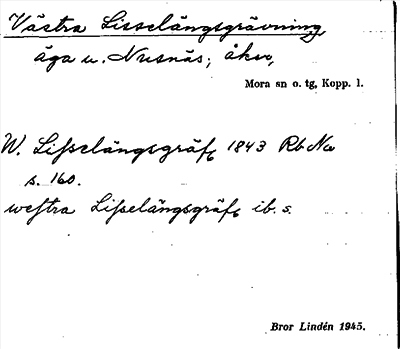 Västra Lisselängsgrävning,
äga u. Nusnäs; åker,
Mora sn o. tg, Kopp. l.
W. Liſselängsgräfg 1843 Rb Na
s. 160.
weſtra Liſselängsgräfg ib. s.
Bror Lindén 1945.